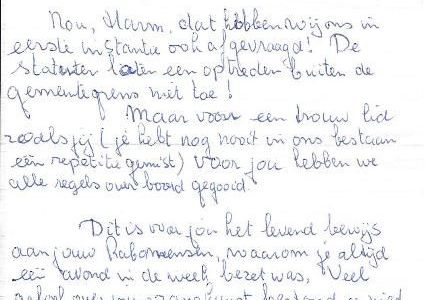 Nou, Harm, dat hebben wij ons in
eerste instantie ook afgevraagd! De
statuten laten een optreden buiten de
gemeentegrens niet toe!
Maar voor een trouw lid
zoals jij (je hebt nog nooit in ons bestaan
één repetitie gemist) voor jou hebben we
alle regels over boord gegooid.
Dit is voor jou het levend bewijs
aan jouw Rabomensen, waarom je altijd
één avond in de week bezet was. Veel